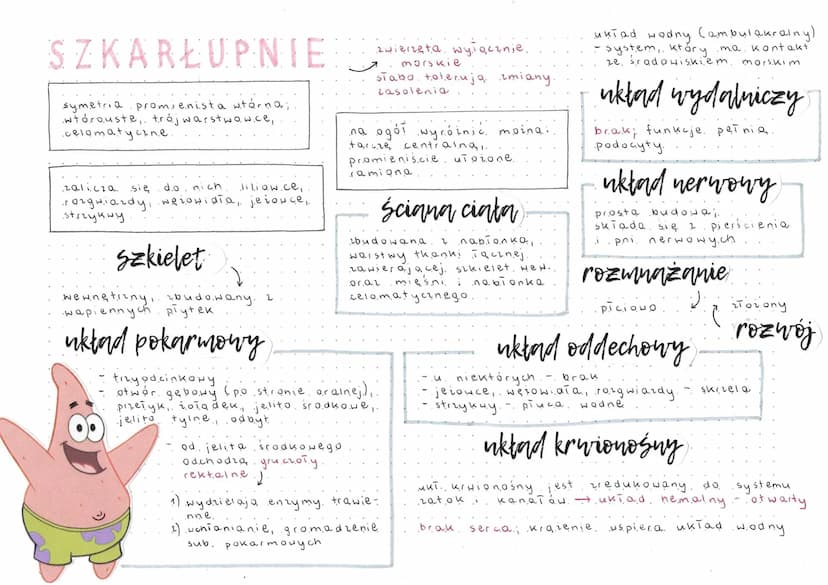 SZKARŁUPNIE
zwierzęta wyłącznie
morskie
słabo tolerują zmiany
zasolenia
układ wodny (ambulakralny)
- system, który ma kontakt
ze środowiskiem morskim
symetria promienista wtórna;
wtórouste, trójwarstwowce,
celomatyczne
na ogół wyróżnić można:
tarczę centralną,
promieniście ułożone
ramiona
układ wydalniczy
brak; funkcje pełnią
podocyty
zalicza się do nich liliowce,
rozgwiazdy, wężowidła, jeżowce,
strzykwy
układ nerwowy
prosta budowa;
składa się z pierścienia
i pni nerwowych
ściana ciała
zbudowana z nabłonka,
warstwy tkanki łącznej
zawierającej szkielet wew.
oraz mięśni i nabłonka
celomatycznego
szkielet
wewnętrzny, zbudowany z
wapiennych płytek
rozmnażanie
płciowo
złożony
rozwój
układ pokarmowy
- trzyodcinkowy
- otwór gębowy (po stronie oralnej),
przełyk, żołądek, jelito środkowe,
jelito tylne, odbyt
- od jelita środkowego
odchodzą gruczoły
rektalne
1) wydzielają enzymy trawie-
nne
2) uchłanianie, gromadzenie
sub. pokarmowych
układ oddechowy
- u niektórych - brak
- jeżowce, wężowidła, rozgwiazdy - skrzela
- strzykwy - płuca wodne
układ krwionośny
ukł. krwionośny jest zredukowany do systemu
zatok i kanałów → układ hemalny - otwarty
brak serca; krążenie wspiera układ wodny